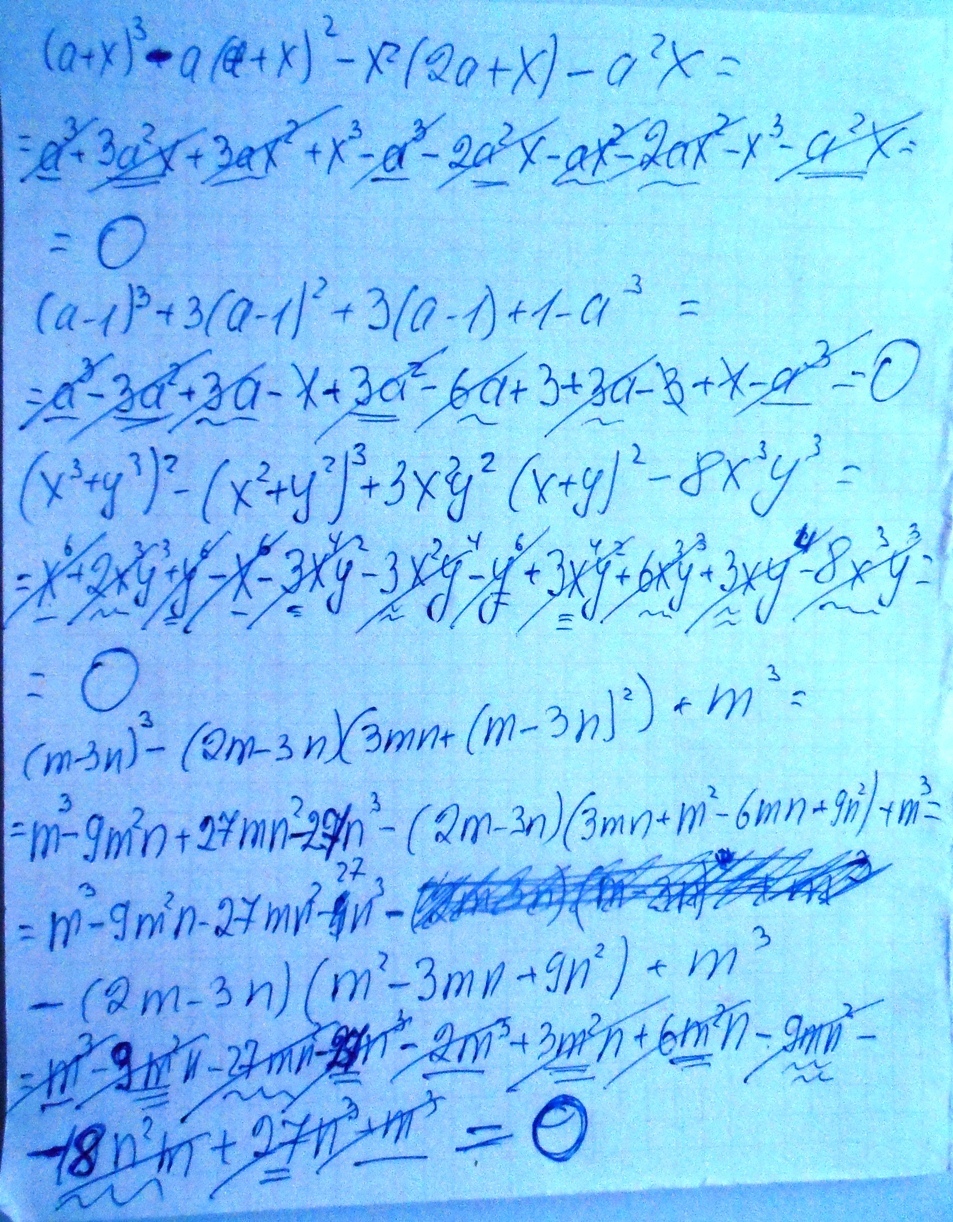 (a+x)³-a(a+x)²-x²(2a+x)-a²x=
=a³+3a²x+3ax²+x³-a³-2a²x-ax²-2ax²-x³-a²x=
=0
(a-1)³+3(a-1)²+3(a-1)+1-a³=
=a³-3a²+3a-1+3a²-6a+3+3a-3+1-a³=0
(x³+y³)²-(x²+y²)³+3x²y²(x+y)²-8x³y³=
=x⁶+2x³y³+y⁶-x⁶-3x⁴y²-3x²y⁴-y⁶+3x⁴y²+6x³y³+3xy⁴-8x³y³=
=0
(m-3n)³-(2m-3n)(3mn+(m-3n)²)+m³=
=m³-9m²n+27mn²-27n³-(2m-3n)(3mn+m²-6mn+9n²)+m³=
=m³-9m²n-27mn²-27n³-
-(2m-3n)(m²-3mn+9n²)+m³
=m³-9m²n-27mn²-27n³-2m³+3m²n+6m²n-9mn²-
-18n²m+27n³+m³=0